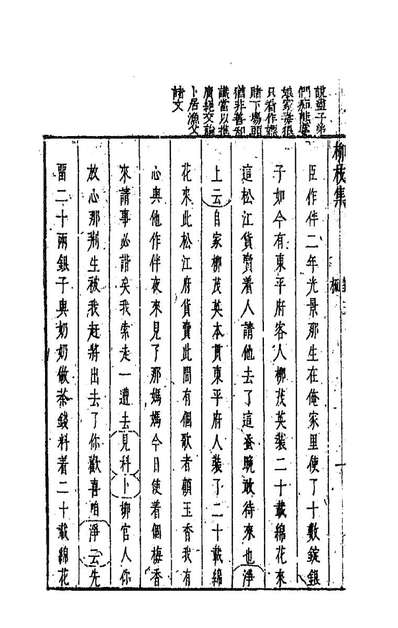 說盡子弟
們扭態處
娘家毒狠
只看作嫖
賭下場頭
猶非善和
議當以進
廣絕交論
卜居漁父
諸文
柳枝集
臣作伴二年光景那生在俺家里使了十數錠銀
子如今有東平府客人柳茂英裝二十載綿花來
這松江貨賣着人請他去了這蚤晚敢待來也淨
上云自家柳茂英本貫東平府人裝了二十載綿
花來此松江府貨賣此間有個歌者顧玉香我有
心與他作伴夜來見了那媽媽今日使着個梅香
來請事必諧矣我索走一遭去見科卜柳官人你
放心那荆生被我赶將出去了你歡喜咱淨云先
畱二十兩銀子與奶奶做茶錢料着二十載綿花